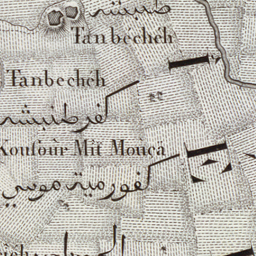 طنبشه
Tanbecheh
Tanbecheh
كفر طنبشه
Koufour Mit Mouça
كفور مية موسي